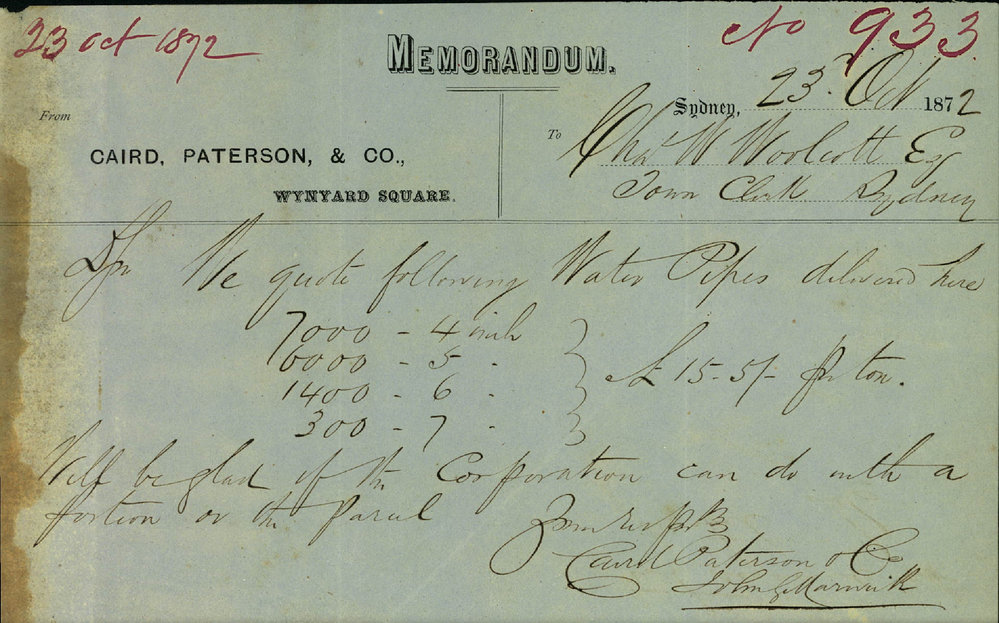 23 Oct 1872
No 933
MEMORANDUM.
Sydney, 23 Oct 1872
From
CAIRD, PATERSON, & CO.,
WYNYARD SQUARE.
To
Chas W Woolcott Esq
Town Clerk Sydney
We quote following Water Pipes delivered here
7000 - 4 inch
6000 - 5 "
1400 - 6 "
300 - 7 "
£15-5/- pr ton.
Will be glad if the Corporation can do with a
portion or the parcel
Caird Paterson & Co
John Marwick